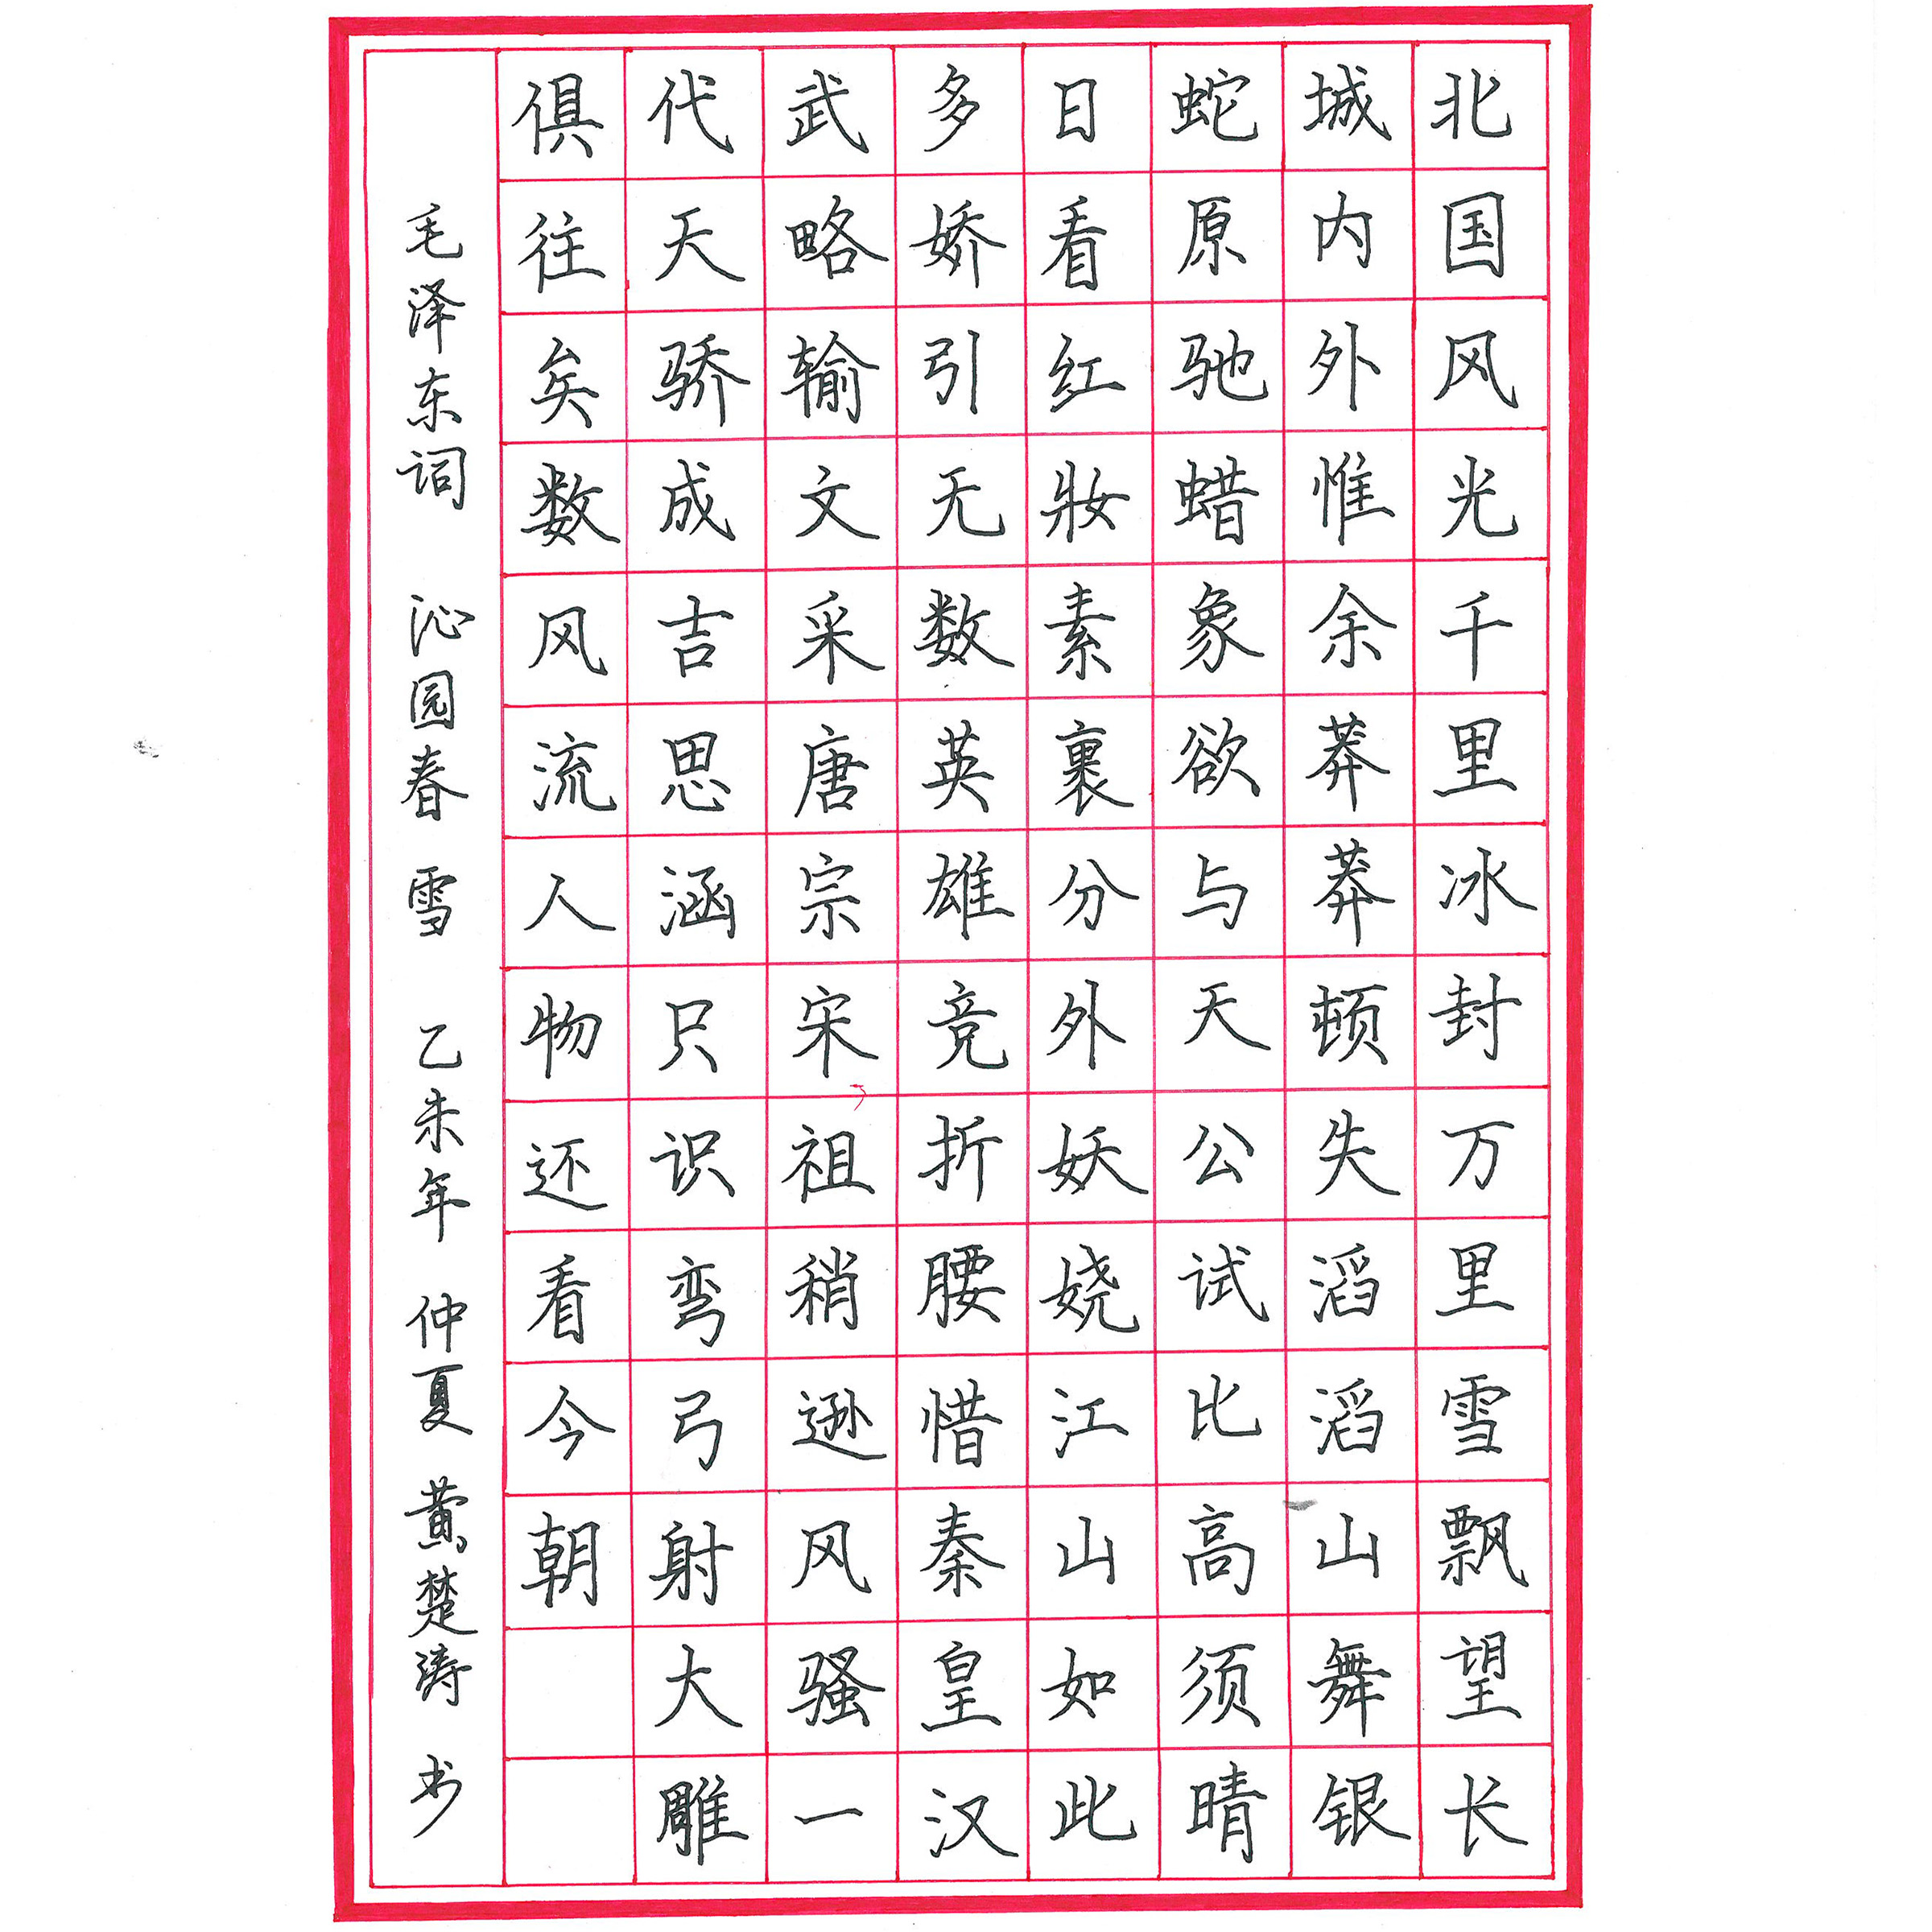 北国风光千里冰封万里雪飘望长
城内外惟余莽莽顿失滔滔山舞银
蛇原驰蜡象欲与天公试比高须晴
日看红妝素裹分外妖娆江山如此
多娇引无数英雄竞折腰惜秦皇汉
武略输文采唐宗宋祖稍逊风骚一
代天骄成吉思涵只识弯弓射大雕
俱往矣数风流人物还看今朝
毛泽东词 沁园春 雪 乙未年 仲夏 黄楚涛 书